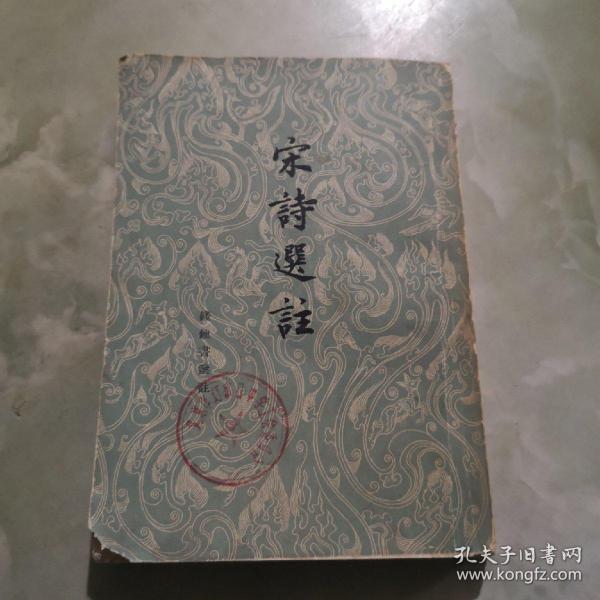 宋詩選註
錢鍾書選註
孔夫子旧書网
www.kongfz.com